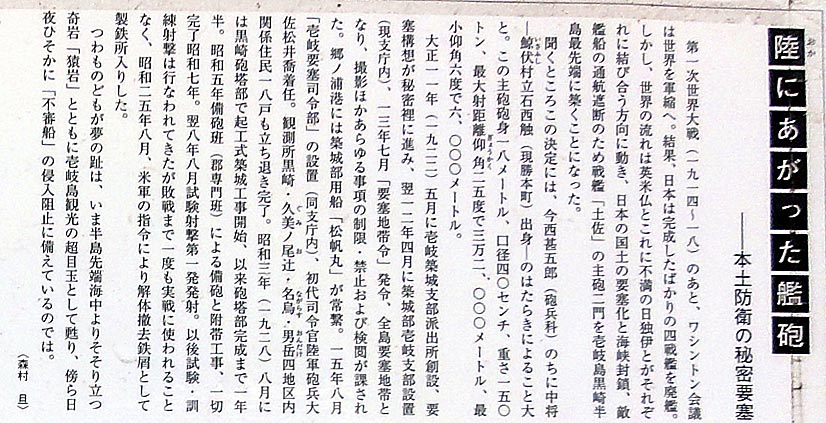 陸にあがった艦砲
おか
――本土防衛の秘密要塞
第一次世界大戦（一九一四〜一八）のあと、ワシントン会議
は世界を軍縮へ。結果、日本は完成したばかりの四戦艦を廃艦。
しかし、世界の流れは英米仏とこれに不満の日独伊とがそれぞ
れに結び合う方向に動き、日本の国土の要塞化と海峡封鎖、敵
艦船の通航遮断のため戦艦「土佐」の主砲二門を壱岐島黒崎半
島最先端に築くことになった。
聞くところこの決定には、今西甚五郎（砲兵科）のちに中将
―鯨伏村立石西触（現勝本町）出身―のはたらきによること大
いさふし
と。この主砲砲身一八メートル、口径四〇センチ、重さ一五〇
トン、最大射距離仰角二五度で三万二、〇〇〇メートル、最
ぎょうかく
小仰角六度で六、〇〇〇メートル。
大正一一年（一九二二）五月に壱岐築城支部派出所創設、要
塞構想が秘密裡に進み、翌一二年四月に築城部壱岐支部設置
（現支庁内）、一三年七月「要塞地帯令」発令、全島要塞地帯と
なり、撮影ほかあらゆる事項の制限・禁止および検閲が課され
た。郷ノ浦港には築城部用船「松帆丸」が常繋。一五年八月
「壱岐要塞司令部」の設置（同支庁内）、初代司令官陸軍砲兵大
佐松井喬着任。観測所黒崎・久美ノ尾辻・名烏・男岳四地区内
ぐみ お ながらす おんだけ
関係住民一八戸も立ち退き完了。昭和三年（一九二八）八月に
は黒崎砲塔部で起工式築城工事開始、以来砲塔部完成まで一年
半。昭和五年備砲班（郡専門班）による備砲と附帯工事、一切
完了昭和七年。翌八年八月試験射撃第一発発射。以後試験・訓
練射撃は行なわれてきたが敗戦まで一度も実戦に使われること
なく、昭和二五年八月、米軍の指令により解体撤去鉄屑として
製鉄所入りした。
つわものどもが夢の趾は、いま半島先端海中よりそそり立つ
奇岩「猿岩」とともに壱岐島観光の超目玉として甦り、傍ら日
夜ひそかに「不審船」の侵入阻止に備えているのでは。
（森村 旦）